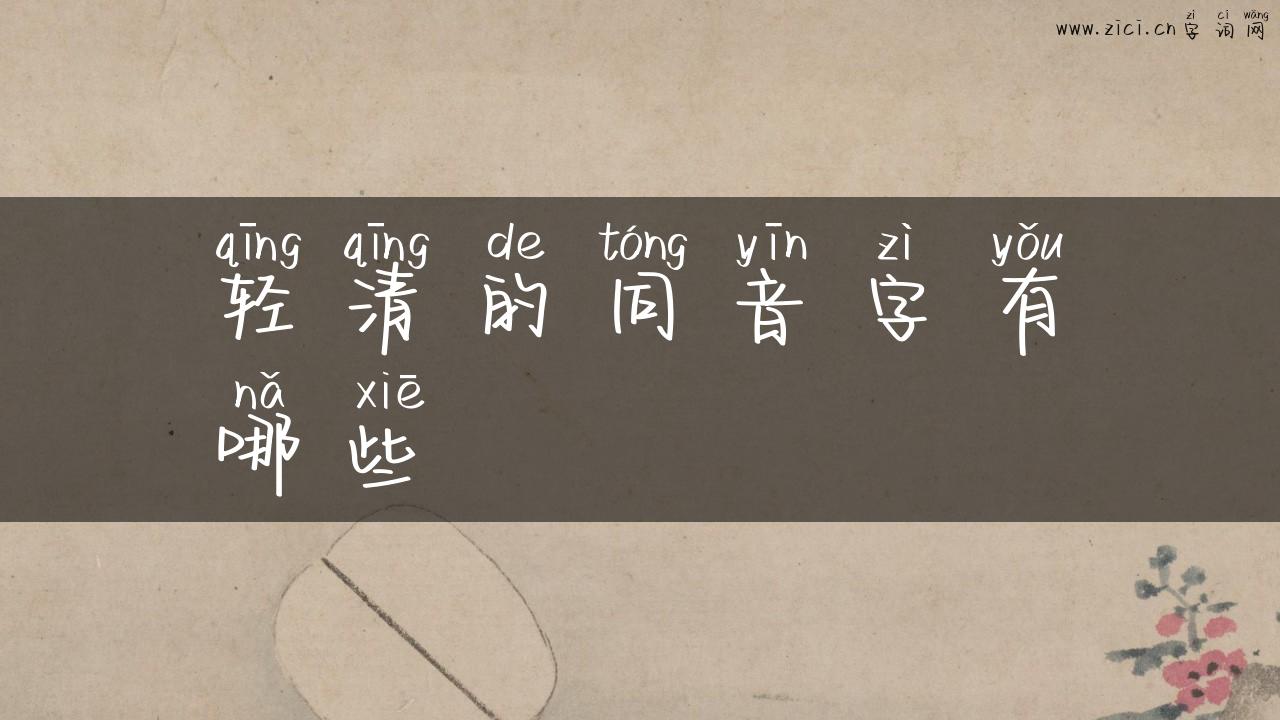 zì cí wǎng
www.zici.cn 字词网
qīng qīng de tóng yīn zì yǒu
轻清的同音字有
nǎ xiē
哪些